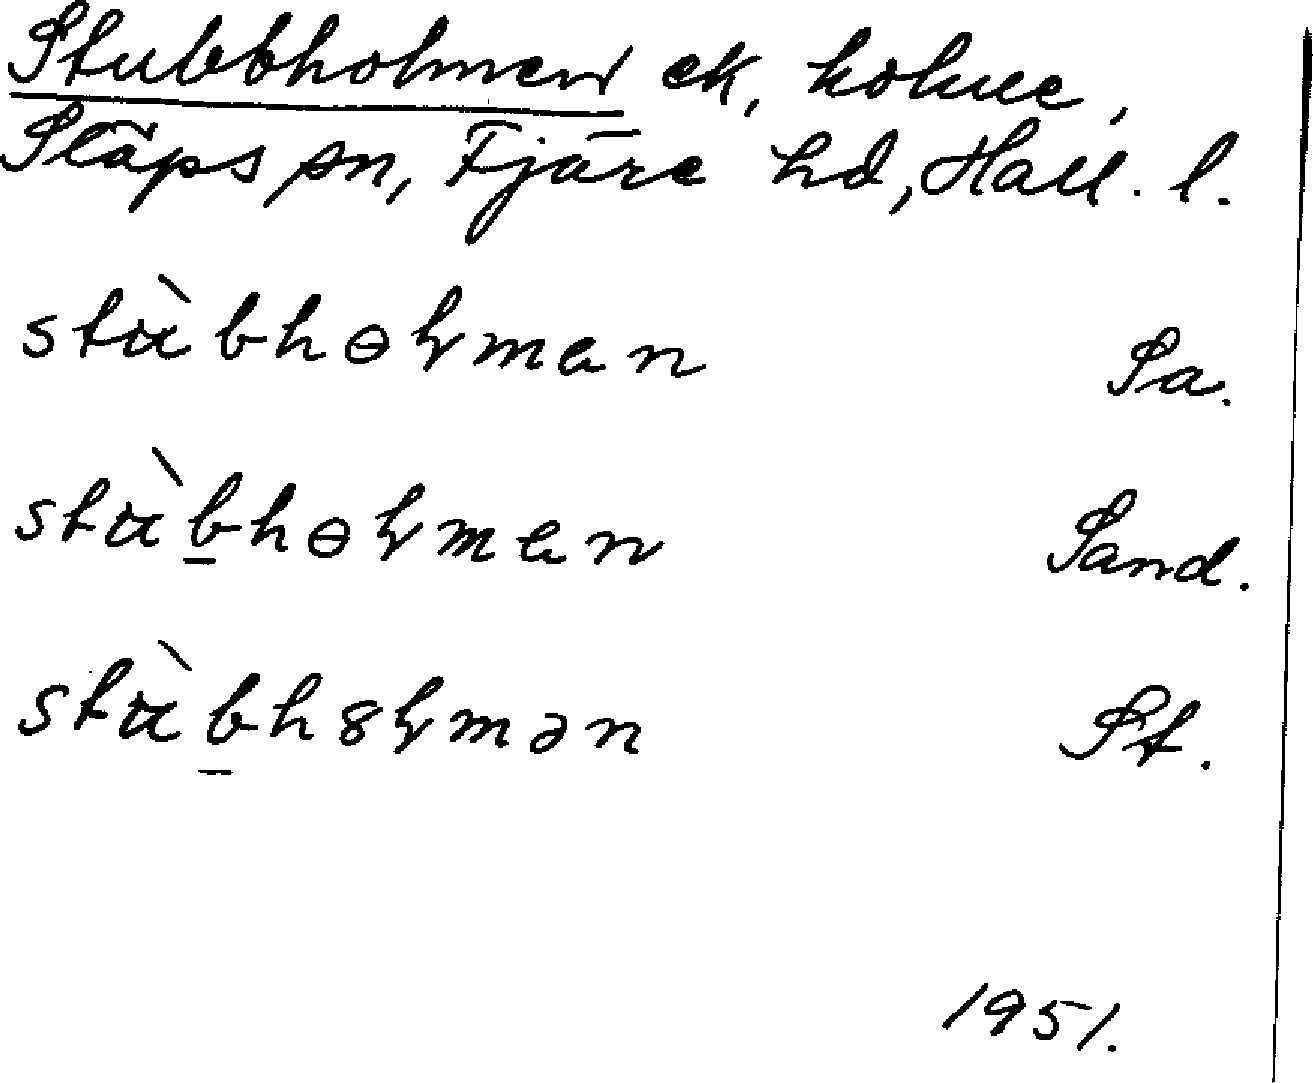 Stubbholmen ek, holme,
Släps sn, Fjäre hd, Hall. l.
stu̇̀bhɵɫman Sa.
stu̇̀b̲hɵɫmen Sand.
stu̇̀b̲h8ɫmən St.
1951.